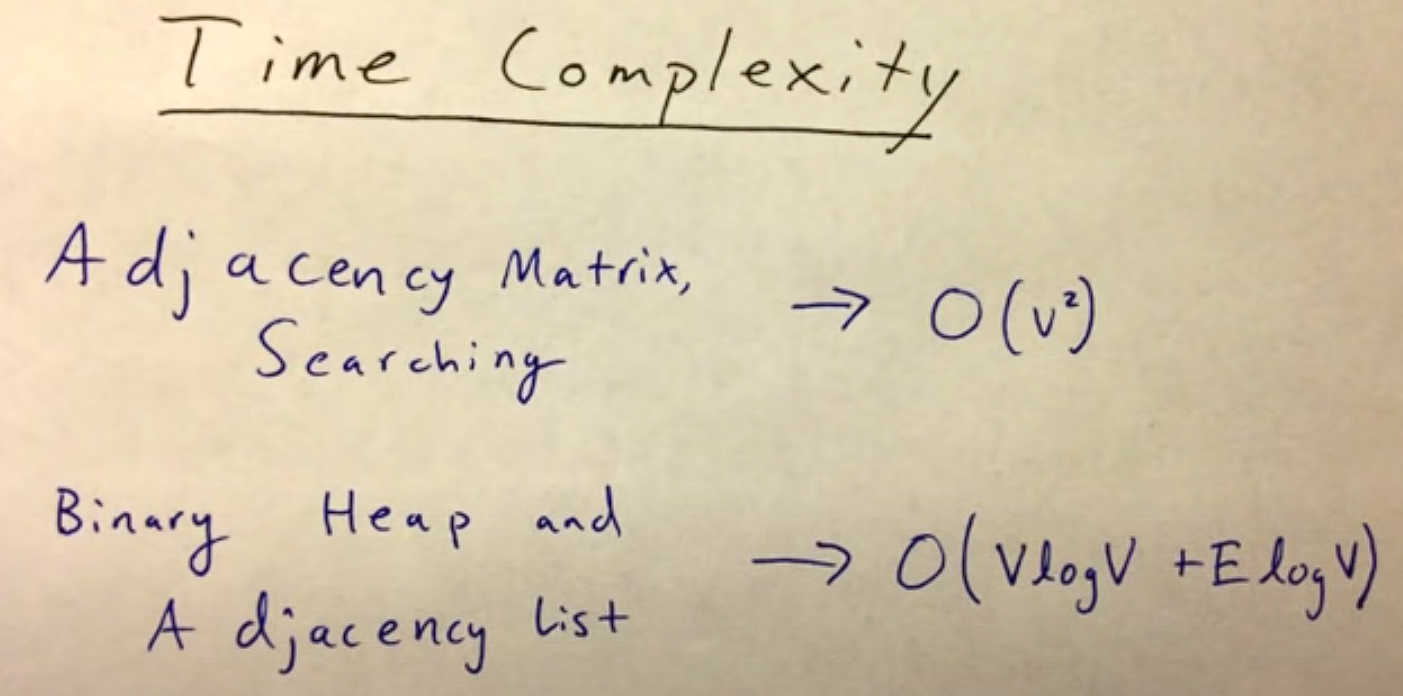 Time Complexity
Adjacency Matrix,
Searching → O(v²)
Binary Heap and
Adjacency List → O(VlogV + E logV)